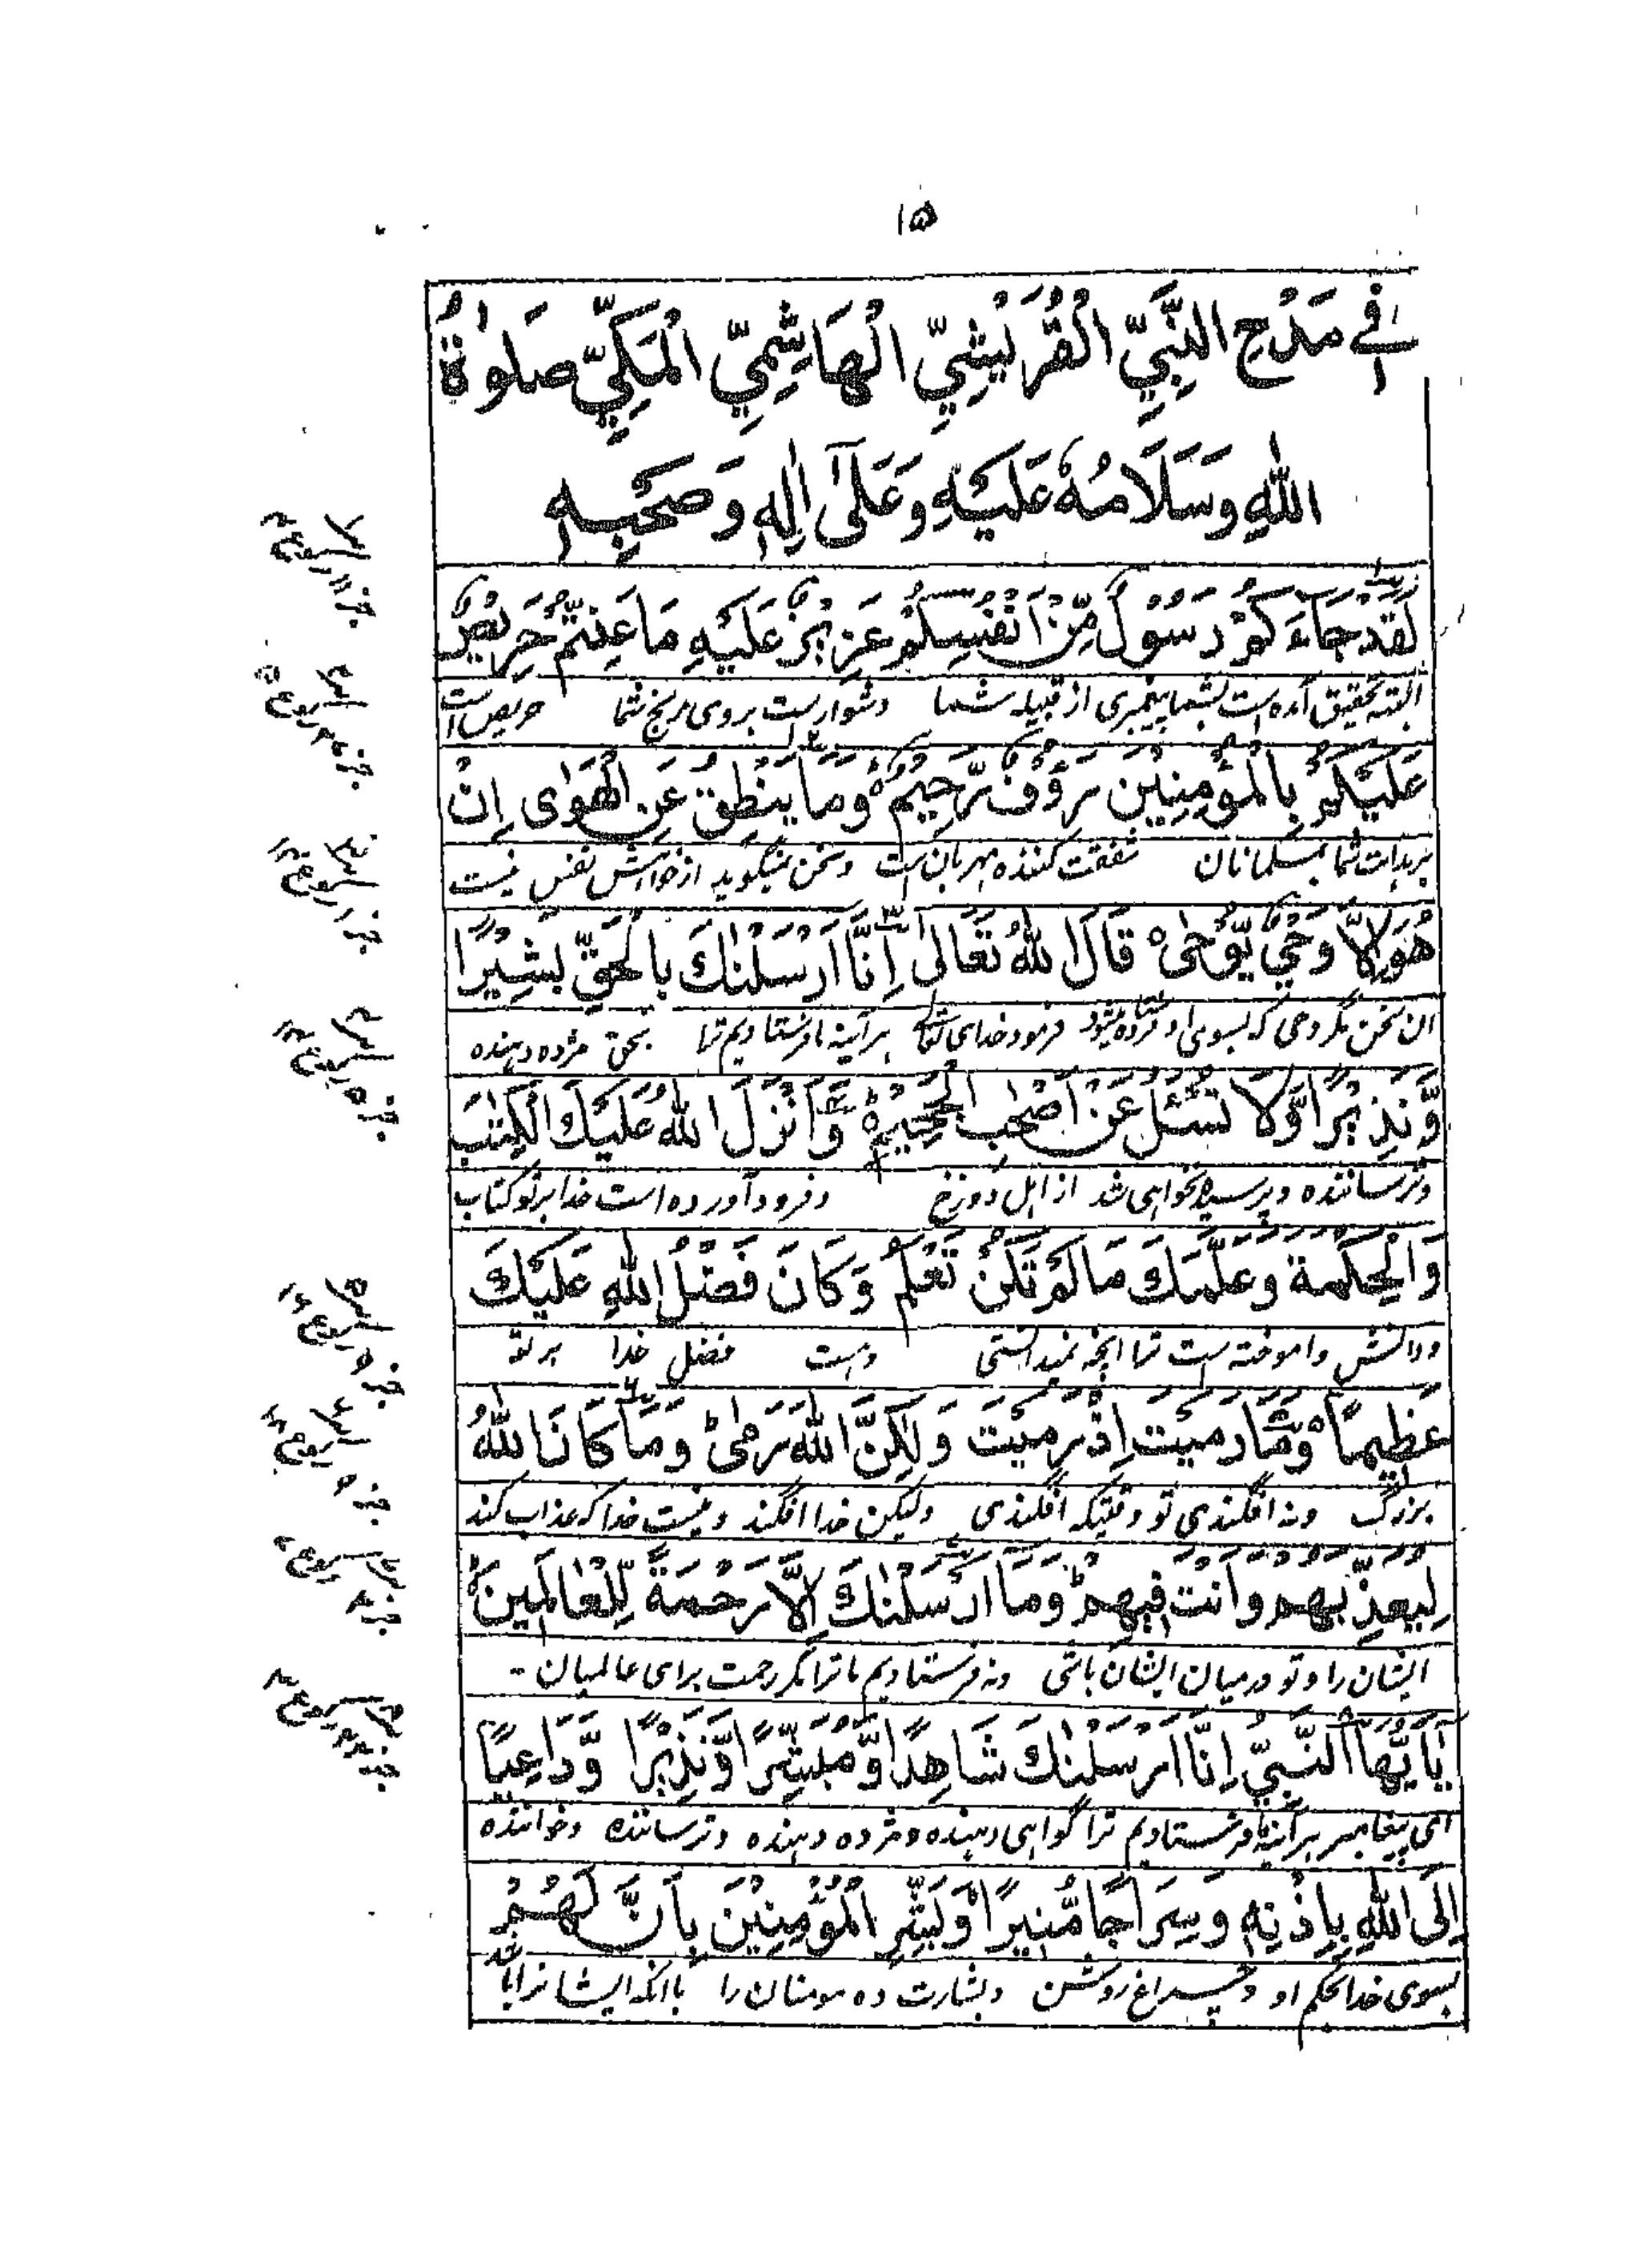 ۱۵
فِي مَدْحِ النَّبِيِّ الْقُرَيْشِيِّ الْهَاشِمِيِّ الْمَكِّيِّ صَلوٰةُ
اللهِ وَسَلَامُهٗ عَلَيْهِ وَعَلَىٰٓ اٰلِهٖ وَصَحْبِهٖ
لَقَدْ جَآءَكُمْ رَسُوْلٌ مِّنْ اَنْفُسِكُمْ عَزِيْزٌ عَلَيْهِ مَا عَنِتُّمْ حَرِيْصٌ
البته تحقیق آمده است بشما پیغمبری از قبیله شما دشوار است بروی رنج شما حریص است
عَلَيْكُمْ بِالْمُؤْمِنِيْنَ رَؤُفٌ رَّحِيْمٌ وَمَا يَنْطِقُ عَنِ الْهَوٰى اِنْ
بر هدایت شما بمسلمانان شفقت کننده مهربان است و سخن نمیگوید از خواهش نفس نیست
هُوَ اِلَّا وَحْيٌ يُّوْحٰى قَالَ اللهُ تَعَالٰى اِنَّا اَرْسَلْنٰكَ بِالْحَقِّ بَشِيْرًا
ان سخن مگر وحی که بسوی او میشود فرمود خدای تعالی هر آئینه ما فرستادیم ترا بحق مژده دهنده
وَّنَذِيْرًا وَّلَا تُسْئَلُ عَنْ اَصْحٰبِ الْجَحِيْمِ وَاَنْزَلَ اللهُ عَلَيْكَ الْكِتٰبَ
و ترساننده و پرسیده نخواهی شد از اهل دوزخ و فرود آورده است خدا بر تو کتاب
وَالْحِكْمَةَ وَعَلَّمَكَ مَا لَمْ تَكُنْ تَعْلَمُ وَكَانَ فَضْلُ اللهِ عَلَيْكَ
و دانش و اموخته است ترا انچه نمیدانستی و هست فضل خدا بر تو
عَظِيْمًا وَمَا رَمَيْتَ اِذْ رَمَيْتَ وَلٰكِنَّ اللهَ رَمٰى وَمَا كَانَ اللهُ
بزرگ و نه افگندی تو وقتیکه افگندی ولیکن خدا افگند و نیست خدا که عذاب کند
لِيُعَذِّبَهُمْ وَاَنْتَ فِيْهِمْ وَمَا اَرْسَلْنٰكَ اِلَّا رَحْمَةً لِّلْعٰالَمِيْنَ
ایشان را و تو در میان ایشان باشی و نه فرستادیم ما ترا مگر رحمت برای عالمیان -
يَا اَيُّهَا النَّبِيُّ اِنَّا اَرْسَلْنٰكَ شَاهِدًا وَّمُبَشِّرًا وَّنَذِيْرًا وَّدَاعِيًا
ای پیغامبر هر آئینه ما فرستادیم ترا گواهی دهنده و مژده دهنده و ترساننده و خواننده
اِلَى اللهِ بِاِذْنِهٖ وَسِرَاجًا مُّنِيْرًا وَبَشِّرِ الْمُؤْمِنِيْنَ بِاَنَّ لَهُمْ
بسوی خدا بحکم او و چراغ روشن و بشارت ده مومنان را باانکه ایشانرا باشد